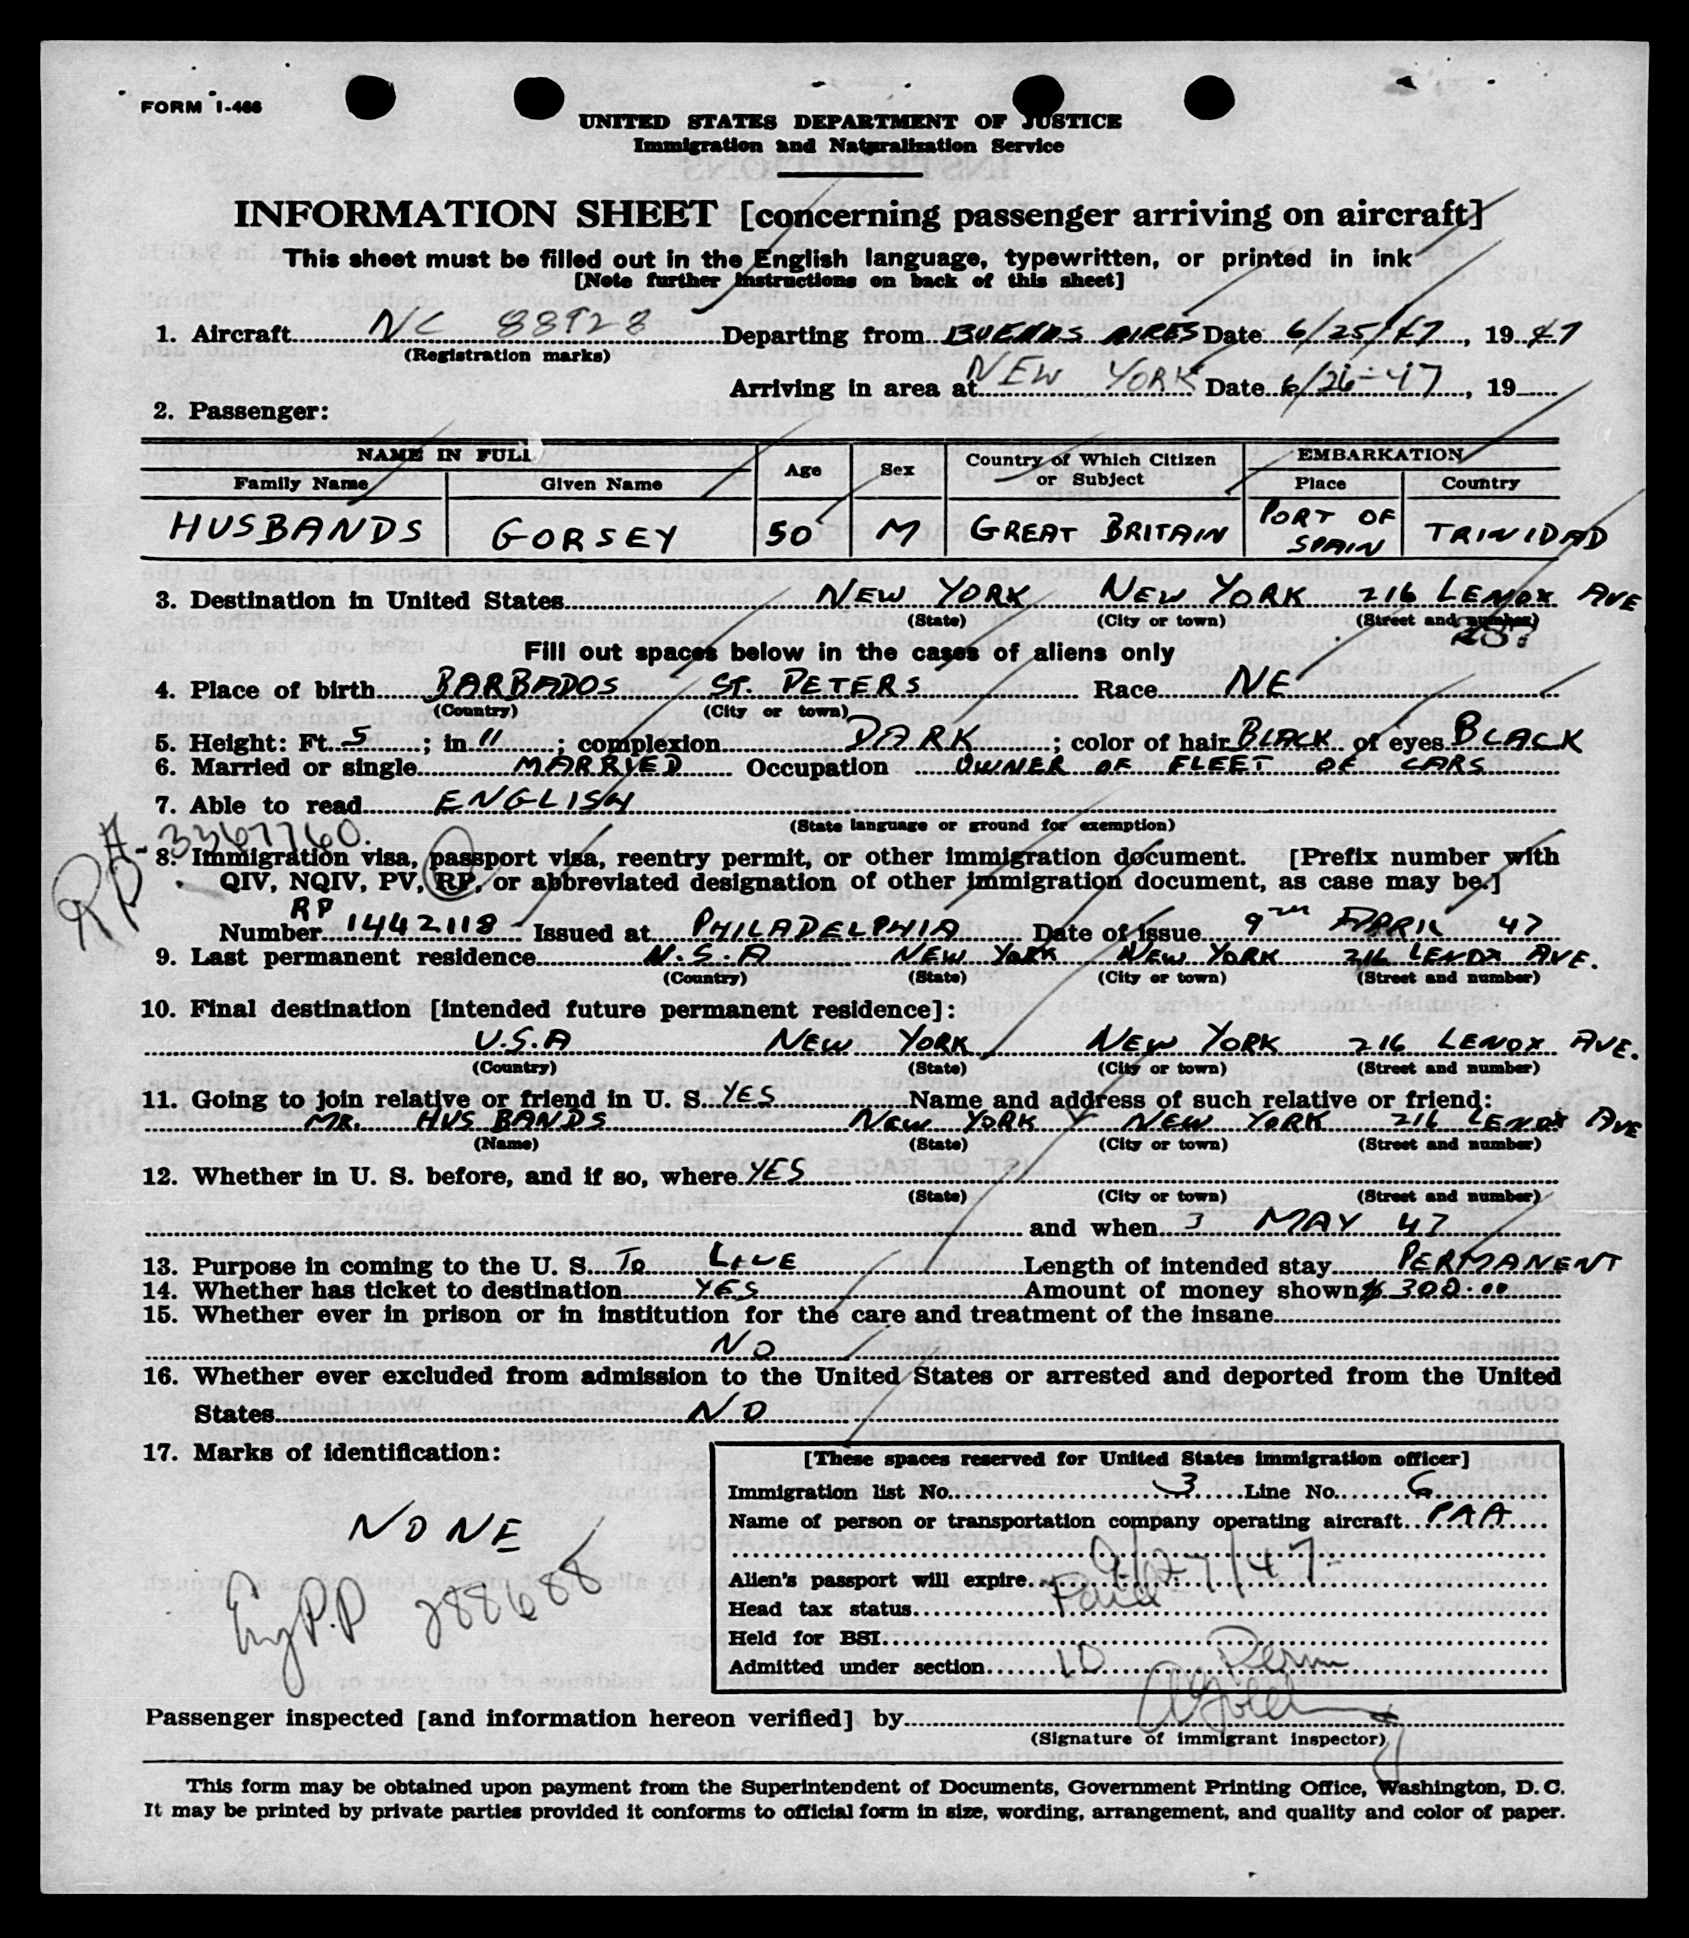 FORM I-466
UNITED STATES DEPARTMENT OF JUSTICE
Immigration and Naturalization Service
INFORMATION SHEET [concerning passenger arriving on aircraft]
This sheet must be filled out in the English language, typewritten, or printed in ink
[Note further instructions on back of this sheet]
1. Aircraft NC 88928 Departing from BUENOS AIRES Date 6/25/47, 1947
(Registration marks)
Arriving in area at NEW YORK Date 6/26-47, 19
2. Passenger:
NAME IN FULL Age Sex Country of Which Citizen or Subject EMBARKATION
Family Name Given Name Place Country
HUSBANDS GORSEY 50 M GREAT BRITAIN PORT OF SPAIN TRINIDAD
3. Destination in United States NEW YORK NEW YORK 216 LENOX AVE
(State) (City or town) (Street and number)
Fill out spaces below in the cases of aliens only
4. Place of birth BARBADOS ST. PETERS Race NE
(Country) (City or town)
5. Height: Ft. 5; in 11; complexion DARK; color of hair BLACK of eyes BLACK
6. Married or single MARRIED Occupation OWNER OF FLEET OF CARS
7. Able to read ENGLISH
(State language or ground for exemption)
RP A-3367760.
8. Immigration visa, passport visa, reentry permit, or other immigration document. [Prefix number with
QIV, NQIV, PV, RP, or abbreviated designation of other immigration document, as case may be.]
RP
Number 1442118 Issued at PHILADELPHIA Date of issue 9TH APRIL 47
9. Last permanent residence U.S.A NEW YORK NEW YORK 216 LENOX AVE.
(Country) (State) (City or town) (Street and number)
10. Final destination [intended future permanent residence]:
U.S.A NEW YORK NEW YORK 216 LENOX AVE.
(Country) (State) (City or town) (Street and number)
11. Going to join relative or friend in U. S. YES Name and address of such relative or friend:
MR. HUSBANDS NEW YORK NEW YORK 216 LENOX AVE
(Name) (State) (City or town) (Street and number)
12. Whether in U. S. before, and if so, where YES
(State) (City or town) (Street and number)
and when 3 MAY 47
13. Purpose in coming to the U. S. TO LIVE Length of intended stay PERMANENT
14. Whether has ticket to destination YES Amount of money shown $300.00
15. Whether ever in prison or in institution for the care and treatment of the insane
NO
16. Whether ever excluded from admission to the United States or arrested and deported from the United
States NO
17. Marks of identification:
NONE
P.P 288688
[These spaces reserved for United States immigration officer]
Immigration list No. 3 Line No. 6
Name of person or transportation company operating aircraft PAA
Alien's passport will expire 9/27/47
Head tax status Paid
Held for BSI
Admitted under section 10 Perm
Passenger inspected [and information hereon verified] by
(Signature of immigrant inspector)
This form may be obtained upon payment from the Superintendent of Documents, Government Printing Office, Washington, D. C.
It may be printed by private parties provided it conforms to official form in size, wording, arrangement, and quality and color of paper.